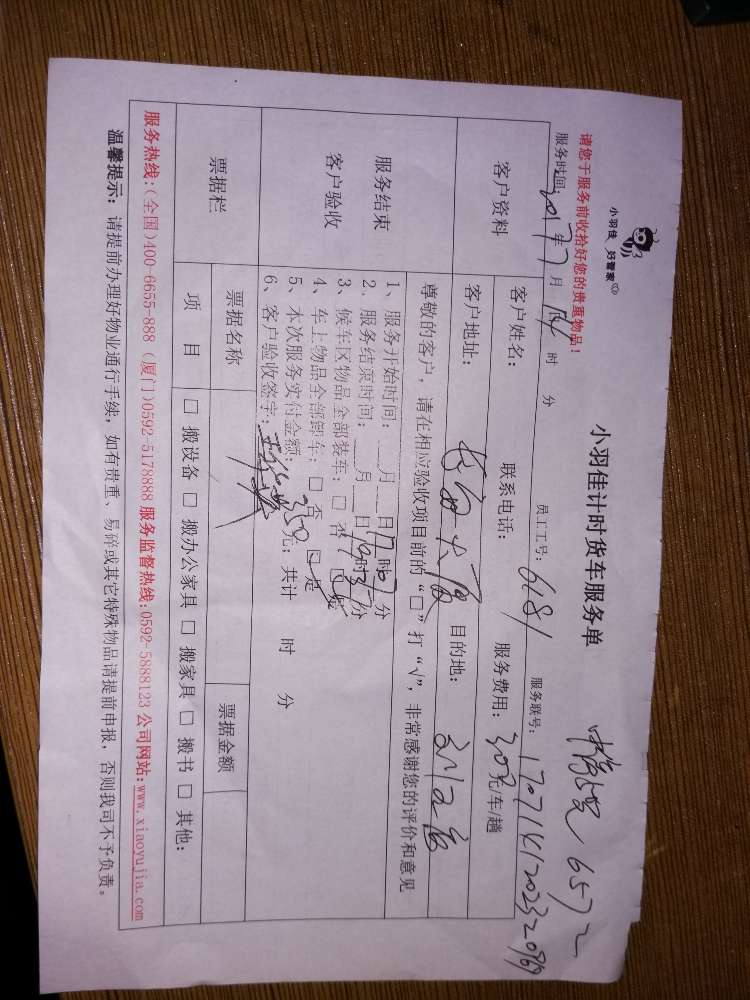 小羽佳 好管家
小羽佳计时货车服务单
6572
请您于服务前收拾好您的贵重物品！
服务时间：2017年7月14时 分 员工工号：6181 服务联号：
客户资料
客户姓名： 联系电话： 服务费用：30元/车/趟
客户地址： 大厦 目的地：
尊敬的客户，请在相应验收项目前的“□”打“√”，非常感谢您的评价和意见
服务结束
客户验收
1、服务开始时间：___月___日17时 分
2、服务结束时间：___月___日19时37分
3、候车区物品全部装车：□ 否 □ 是
4、车上物品全部卸车：□ 否 □ 是
5、本次服务实付金额：350元；共计 时 分
6、客户验收签字：
票据栏
票据名称 票据金额
项 目 □ 搬设备 □ 搬办公家具 □ 搬家具 □ 搬书 □ 其他：
服务热线：（全国）400-6655-888（厦门）0592-5178888 服务监督热线：0592-5888123 公司网站：www.xiaoyujia.com
温馨提示：请提前办理好物业通行手续，如有贵重、易碎或其它特殊物品请提前申报，否则我司不予负责。